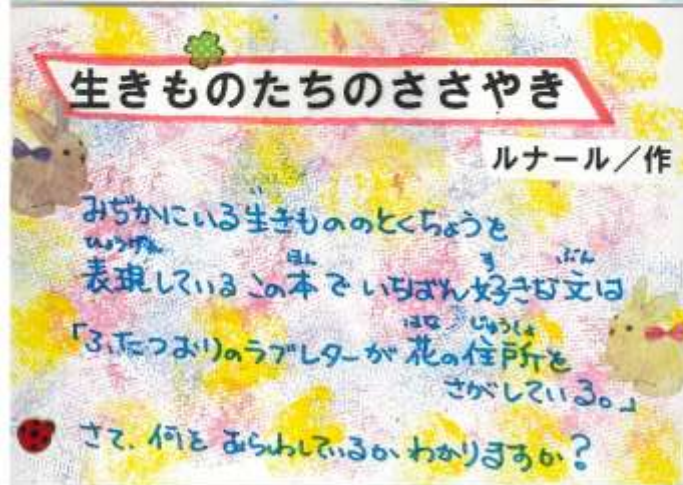 生きものたちのささやき
ルナール／作
みぢかにいる生きもののとくちょうを
表現しているこの本でいちばん好きな文は
「ふたつおりのラブレターが花の住所を
さがしている。」
さて、何をあらわしているかわかりますか?